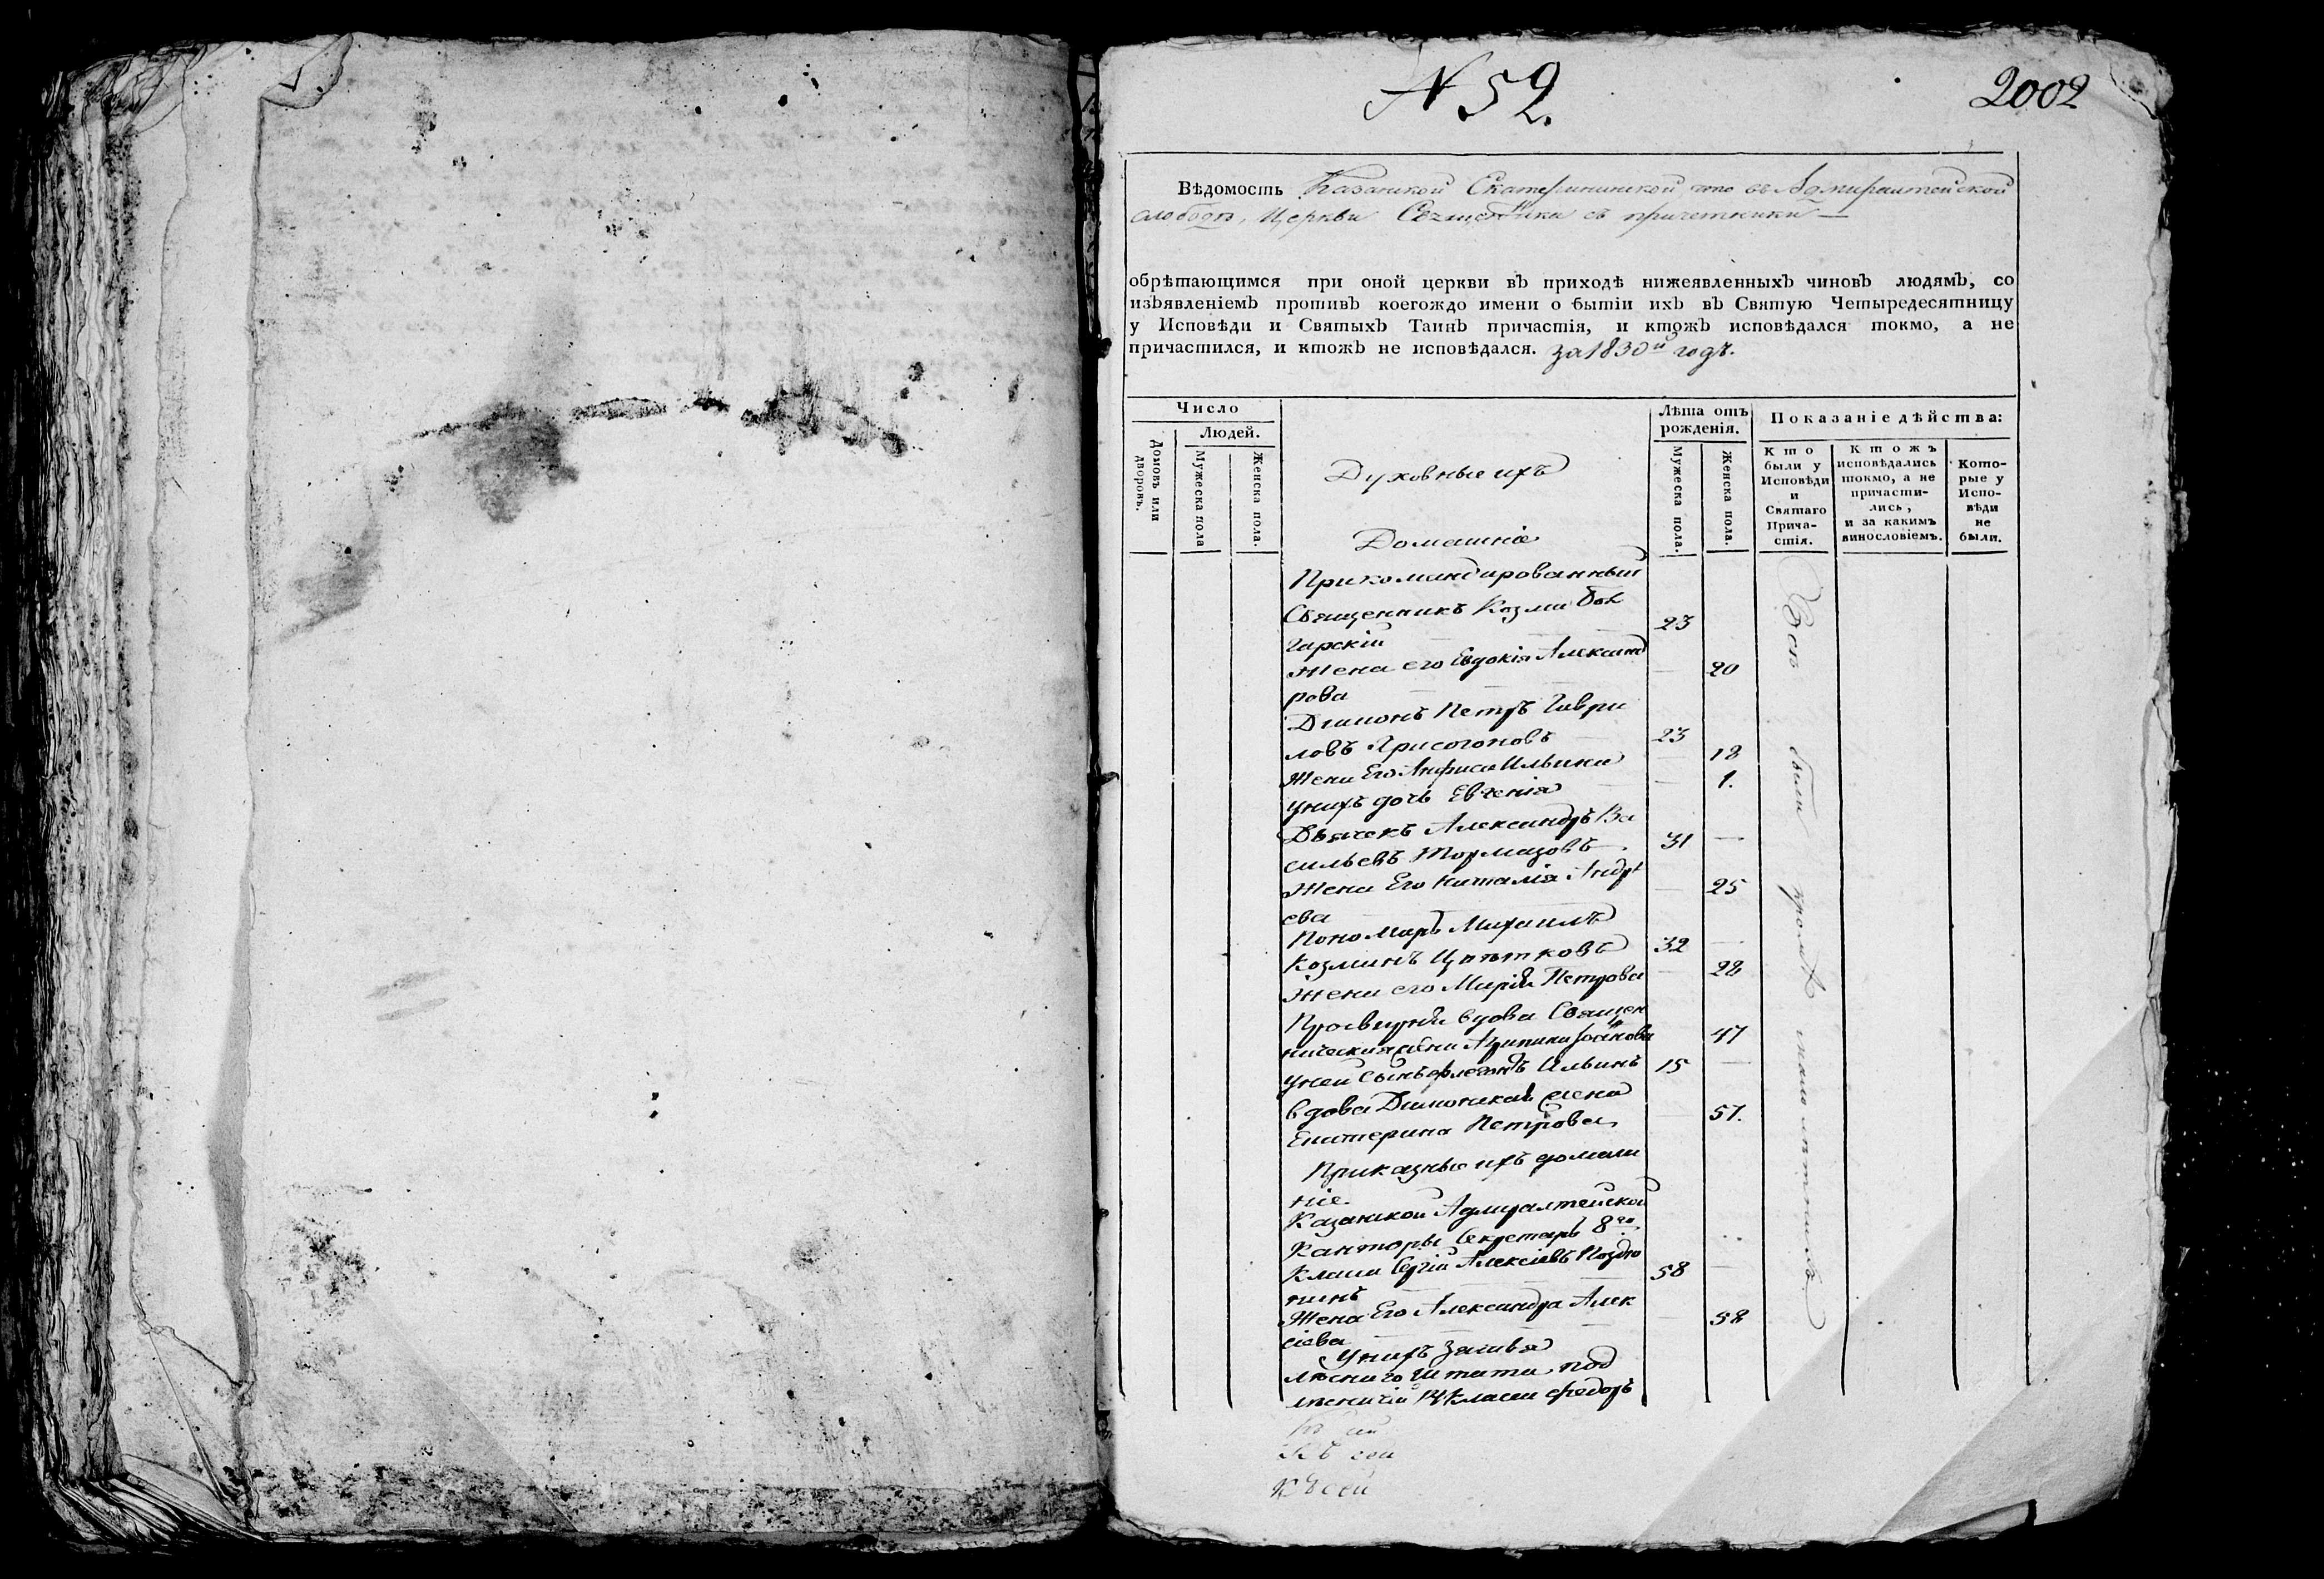 N 52.
2002
Вѣдомость Казанской Екатерининской что въ Адмиралтейской
слободѣ, Церкви Священника съ причетники —
обрѣтающимся при оной церкви въ приходѣ нижеявленныхъ чиновъ людямъ, со
изъявленіемъ противъ коегождо имени о бытіи ихъ въ Святую Четыредесятницу
у Исповѣди и Святыхъ Таинъ причастія, и ктожъ исповѣдался токмо, а не
причастился, и ктожъ не исповѣдался. за 1830й годъ.
Число
Людей.
Домовъ или дворовъ.
Мужеска пола
Женска пола.
Духовные ихъ
Домашніе
Лѣта отъ рожденія.
Мужеска пола.
Женска пола.
Показаніе дѣйства:
Кто были у Исповѣди и Святаго Причастія.
Ктожъ исповѣдались токмо, а не причастились, и за какимъ винословіемъ.
Которые у Исповѣди не были.
Прикомандированный
Священникъ Козма Бол
гарскій 23
Жена его Евдокія Александ 20
рова
Діаконъ Петръ Гаври
ловъ Хрисогоновъ 23
Жена Его Анфиса Ильина 18
у нихъ дочь Евгенія 1.
Дьячекъ Александръ Ва
сильевъ Тормазовъ 31 —
Жена Его Наталія Андре 25
ева
Пономарь Михаилъ
Козминъ Цвѣтковъ 32 —
Жена его Марія Петрова 28
Просвирня вдова Священ
ническая жена Агрипина Іоаннова 47
у ней сынъ Флегонтъ Ильинъ 15 —
вдова Діаконская жена
Екатерина Петрова 57.
Приказные ихъ домаш
ніе.
Казанской Адмиралтейской
Канторы Секретарь 8го
Класа Сергій Алексіевъ Поздю 58 —
нинъ
Жена Его Александра Алек 58
сіева
У нихъ зятья
Лѣснаго Штата под
лѣсничій 14 Класа Федоръ
Всѣ были кромѣ малолѣтнихъ
Къ сей
Къ сей